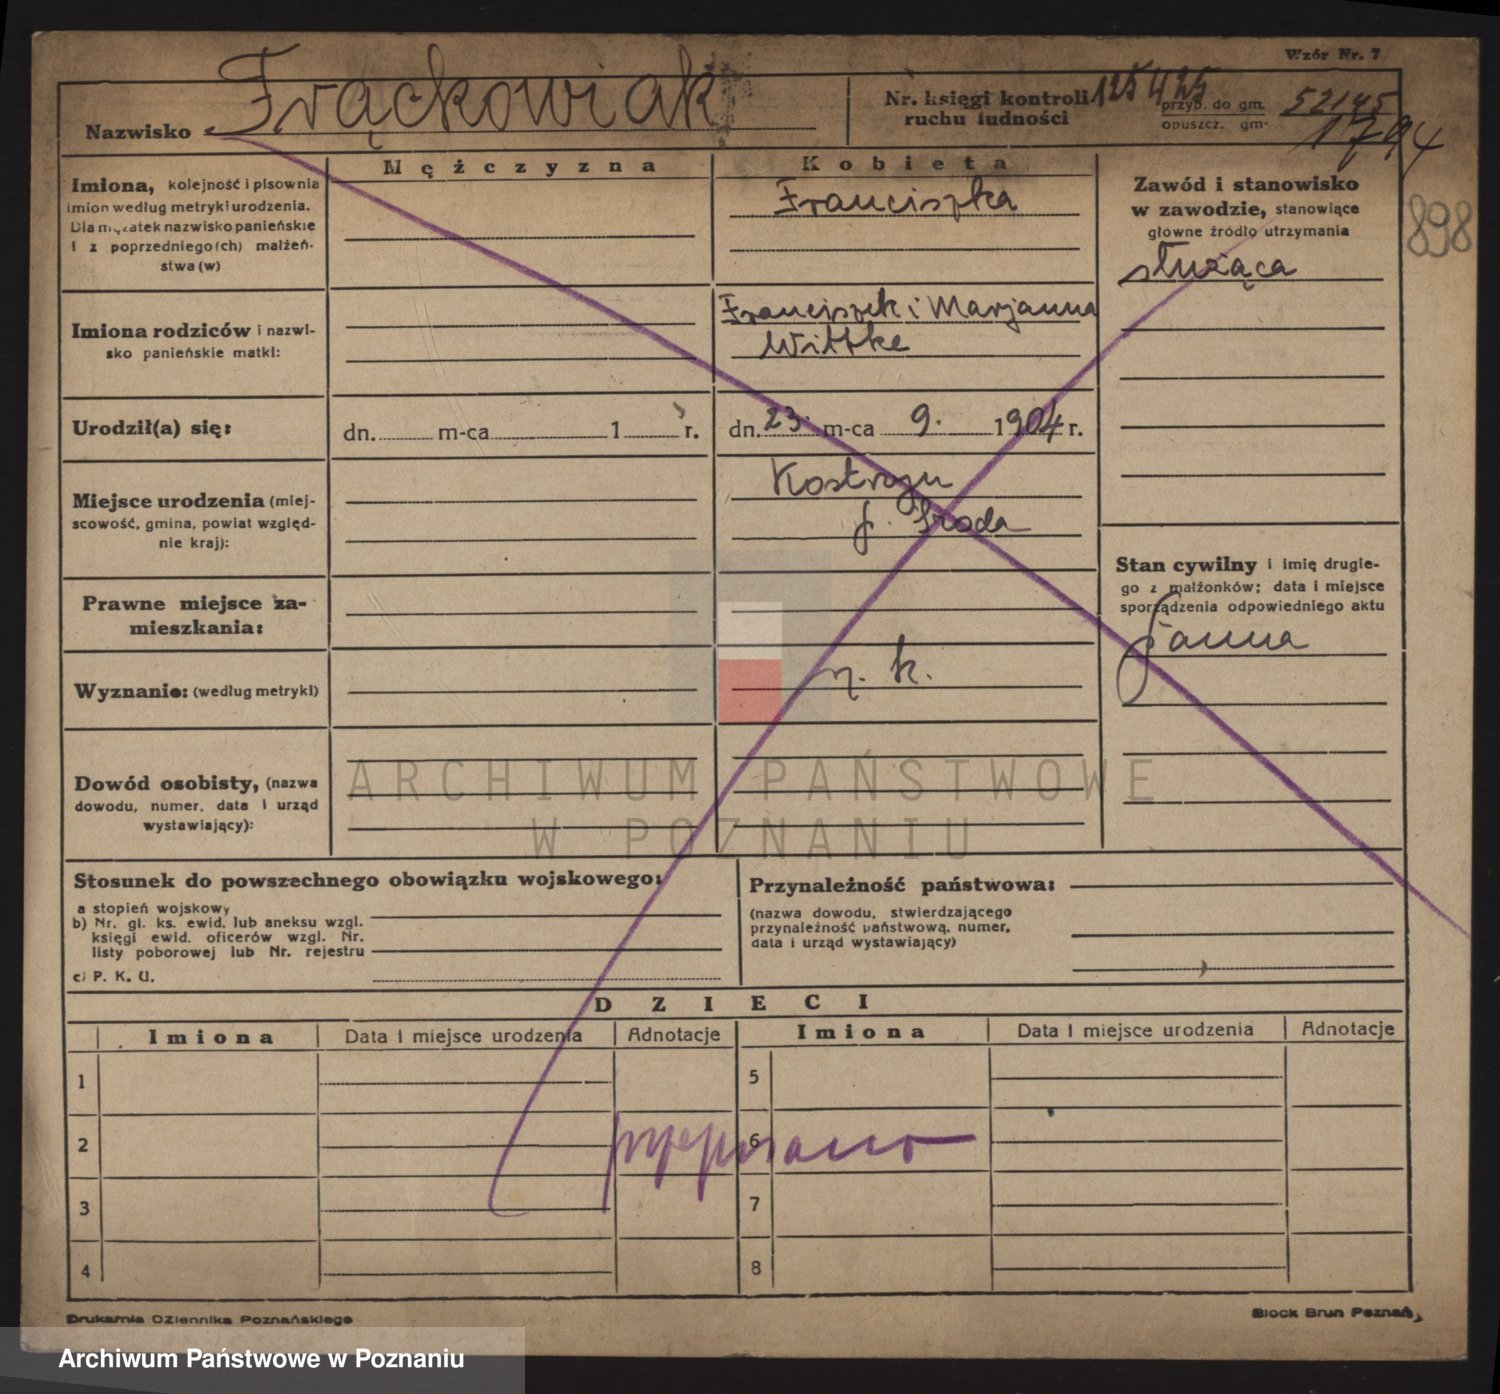 Wzór Nr. 7
Nazwisko Frąckowiak
Nr. księgi kontroli ruchu ludności 125425
przyb. do gm. 52145
opuszcz. gm. 1794
898
Mężczyzna
Kobieta
Imiona, kolejność i pisownia
imion według metryki urodzenia.
Dla mężatek nazwisko panieńskie
i z poprzedniego(ch) małżeń-
stwa (w)
Franciszka
Zawód i stanowisko
w zawodzie, stanowiące
główne źródło utrzymania
służąca
Imiona rodziców i nazwi-
sko panieńskie matki:
Franciszek i Marjanna
Wittke
Urodził(a) się:
dn. m-ca 1 r.
dn. 23. m-ca 9. 1904 r.
Miejsce urodzenia (miej-
scowość, gmina, powiat względ-
nie kraj):
Kostrzyn
p. Środa
Stan cywilny i imię drugie-
go z małżonków; data i miejsce
sporządzenia odpowiedniego aktu
panna
Prawne miejsce za-
mieszkania:
Wyznanie: (według metryki)
r. k.
Dowód osobisty, (nazwa
dowodu, numer, data i urząd
wystawiający):
ARCHIWUM PAŃSTWOWE
W POZNANIU
Stosunek do powszechnego obowiązku wojskowego:
a stopień wojskowy
b) Nr. gł. ks. ewid. lub aneksu wzgl.
księgi ewid. oficerów wzgl. Nr.
listy poborowej lub Nr. rejestru
c) P. K. U.
Przynależność państwowa:
(nazwa dowodu, stwierdzającego
przynależność państwową, numer,
data i urząd wystawiający)
DZIECI
Imiona Data i miejsce urodzenia Adnotacje Imiona Data i miejsce urodzenia Adnotacje
1 5
2 6
przepisano
3 7
4 8
Drukarnia Dziennika Poznańskiego
Block Brun Poznań
Archiwum Państwowe w Poznaniu